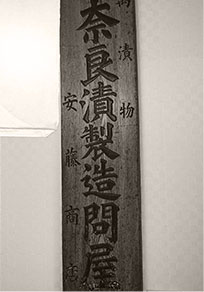 萬漬物
奈良漬製造問屋
安藤商店